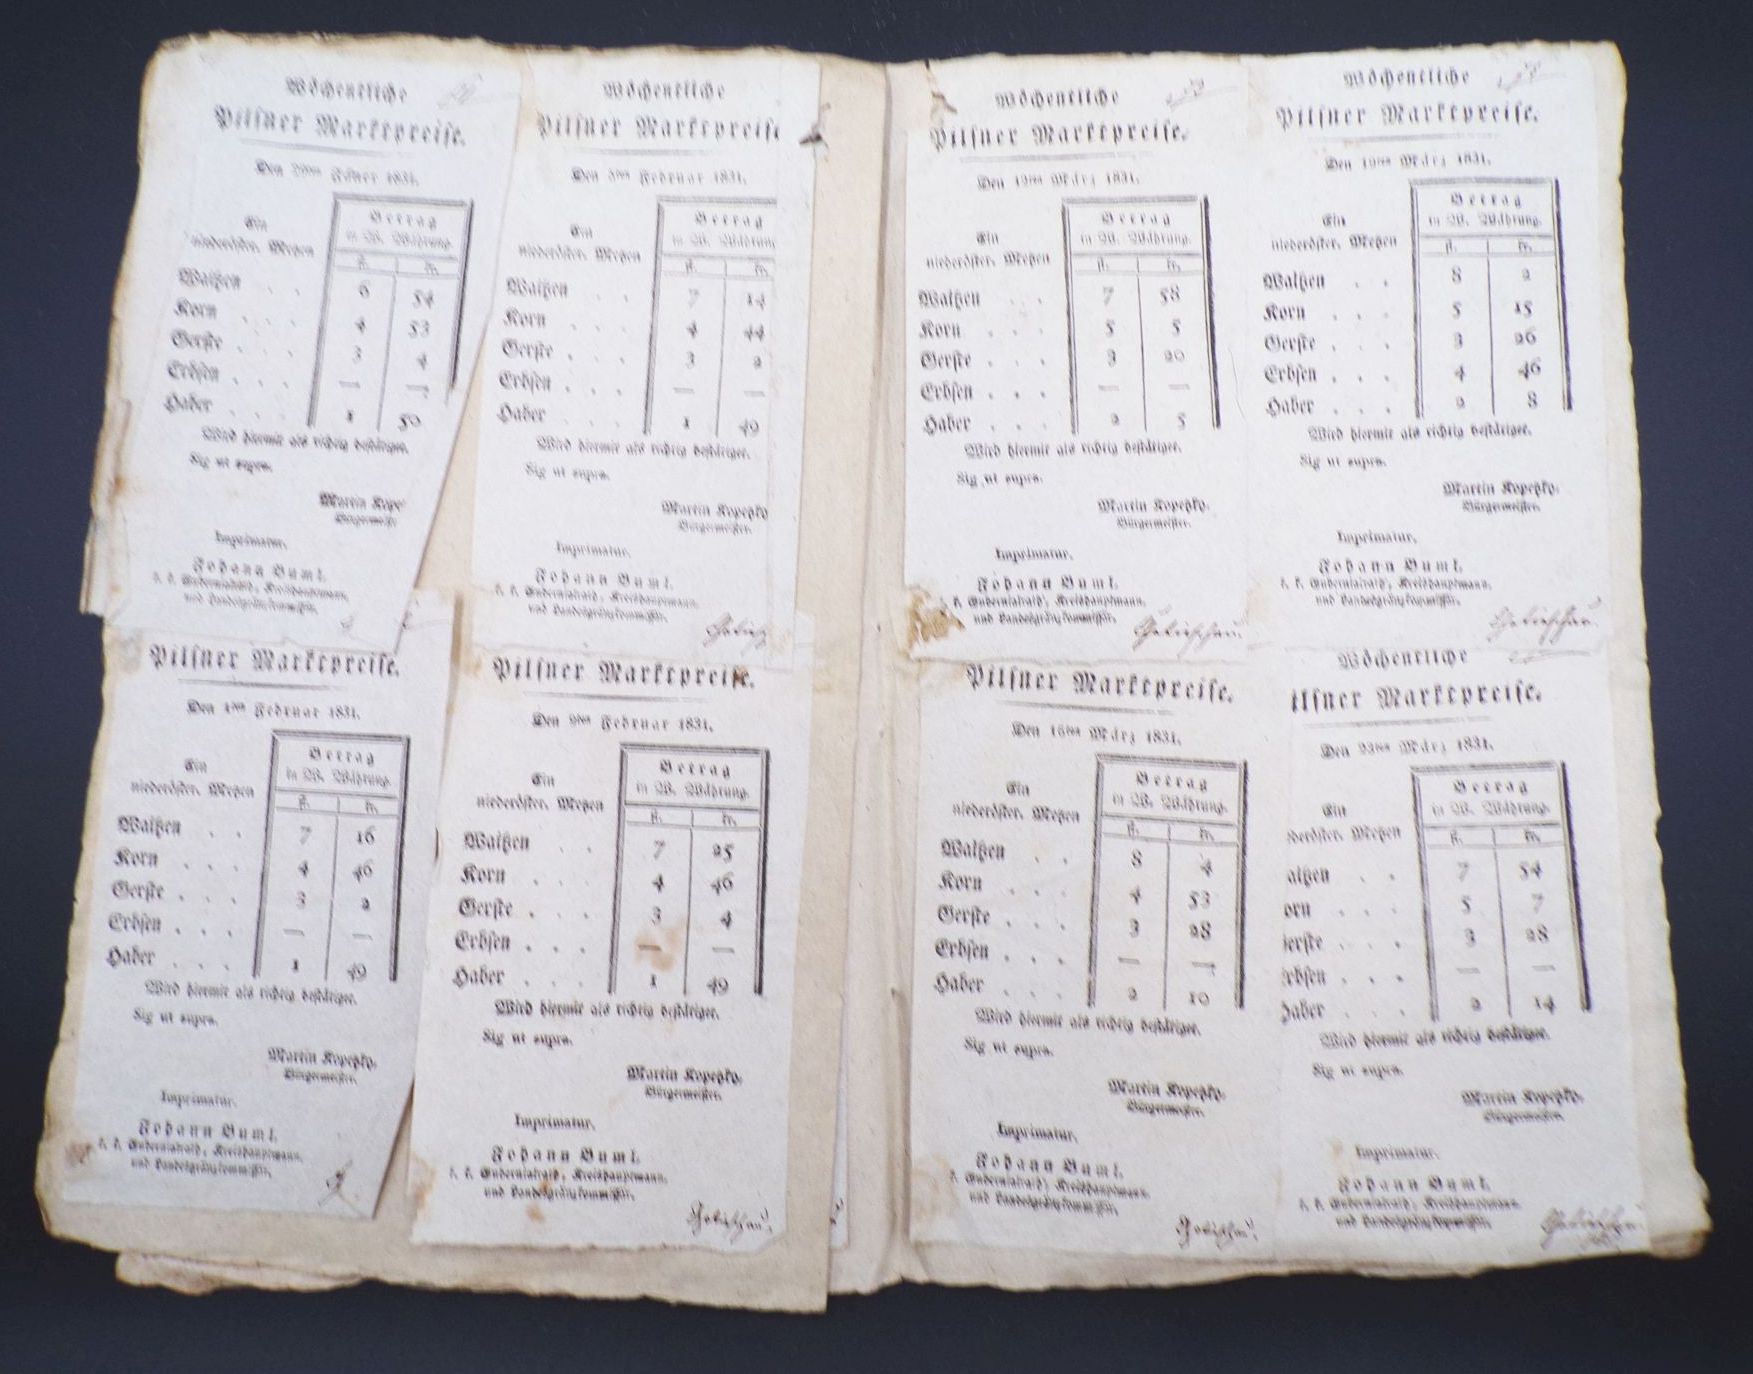 Wöchentliche
Pilsner Marktpreise.
Den Jäner 1831.
Ein
niederöster. Metzen
Betrag
in W. Währung.
fl. kr.
Waitzen . . 6 54
Korn . . . 4 53
Gerste . . . 3 4
Erbsen . . . — —
Haber . . . 1 50
Wird hiermit als richtig bestätiget.
Sig ut supra.
Martin Kope
Bürgermeist
Imprimatur.
Johann Buml,
k. k. Gubernialrath, Kreishauptmann,
und Landesgränzkommissär.
Wöchentliche
Pilsner Marktpreise
Den 5ten Februar 1831.
Ein
niederöster. Metzen
Betrag
in W. Währung
fl. kr.
Waitzen . . 7 14
Korn . . . 4 44
Gerste . . . 3 2
Erbsen . . . — —
Haber . . . 1 49
Wird hiermit als richtig bestätiget.
Sig ut supra.
Martin Kopetzko
Bürgermeister.
Imprimatur.
Johann Buml,
k. k. Gubernialrath, Kreishauptmann,
und Landesgränzkommissär.
Pilsner Marktpreise.
Den Februar 1831.
Ein
niederöster. Metzen
Betrag
in W. Währung.
fl. kr.
Waitzen . . 7 16
Korn . . . 4 46
Gerste . . . 3 2
Erbsen . . . — —
Haber . . . 1 49
Wird hiermit als richtig bestätiget.
Sig ut supra.
Martin Kopetzko,
Bürgermeister.
Imprimatur.
Johann Buml,
k. k. Gubernialrath, Kreishauptmann,
und Landesgränzkommissär.
Pilsner Marktpreise.
Den 9ten Februar 1831.
Ein
niederöster. Metzen
Betrag
in W. Währung.
fl. kr.
Waitzen . . 7 25
Korn . . . 4 46
Gerste . . . 3 4
Erbsen . . . — —
Haber . . . 1 49
Wird hiermit als richtig bestätiget.
Sig ut supra.
Martin Kopetzko,
Bürgermeister.
Imprimatur.
Johann Buml,
k. k. Gubernialrath, Kreishauptmann,
und Landesgränzkommissär.
Wöchentliche
Pilsner Marktpreise.
Den 12ten März 1831.
Ein
niederöster. Metzen
Betrag
in W. Währung.
fl. kr.
Waitzen . . 7 58
Korn . . . 5 5
Gerste . . . 3 20
Erbsen . . . — —
Haber . . . 2 5
Wird hiermit als richtig bestätiget.
Sig ut supra.
Martin Kopetzko,
Bürgermeister.
Imprimatur.
Johann Buml,
k. Gubernialrath, Kreishauptmann,
und Landesgränzkommissär.
Wöchentliche
Pilsner Marktpreise.
Den 19ten März 1831.
Ein
niederöster. Metzen
Betrag
in W. Währung.
fl. kr.
Waitzen . . 8 2
Korn . . . 5 15
Gerste . . . 3 26
Erbsen . . . 4 46
Haber . . . 2 8
Wird hiermit als richtig bestätiget.
Sig ut supra.
Martin Kopetzko,
Bürgermeister.
Imprimatur.
Johann Buml,
k. k. Gubernialrath, Kreishauptmann,
und Landesgränzkommissär.
Pilsner Marktpreise.
Den 16ten März 1831.
Ein
niederöster. Metzen
Betrag
in W. Währung.
fl. kr.
Waitzen . . 8 4
Korn . . . 4 53
Gerste . . . 3 28
Erbsen . . . — —
Haber . . . 2 10
Wird hiermit als richtig bestätiget.
Sig ut supra.
Martin Kopetzko,
Bürgermeister.
Imprimatur.
Johann Buml,
k. k. Gubernialrath, Kreishauptmann,
und Landesgränzkommissär.
Wöchentliche
ilsner Marktpreise.
Den 23ten März 1831.
Ein
deröster. Metzen
Betrag
in W. Währung.
fl. kr.
aitzen . . 7 54
orn . . . 5 7
erste . . . 3 28
rbsen . . . — —
haber . . . 2 14
Wird hiermit als richtig bestätiget.
Sig ut supra.
Martin Kopetzko,
Bürgermeister.
Imprimatur.
Johann Buml,
k. k. Gubernialrath, Kreishauptmann,
und Landesgränzkommissär.